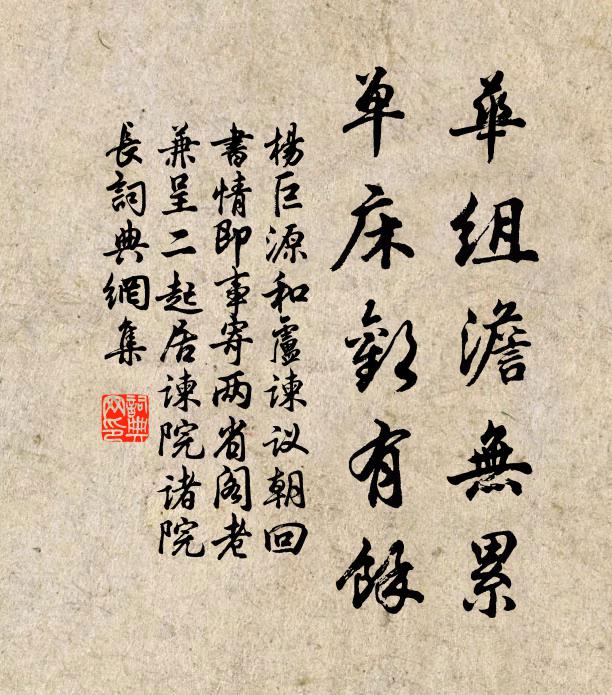 華組澹無累
单床歡有餘
楊巨源和盧諫议朝回
書情即事寄两省阁老
兼呈二起居諫院诸院
長詞典網集
詞典
网印